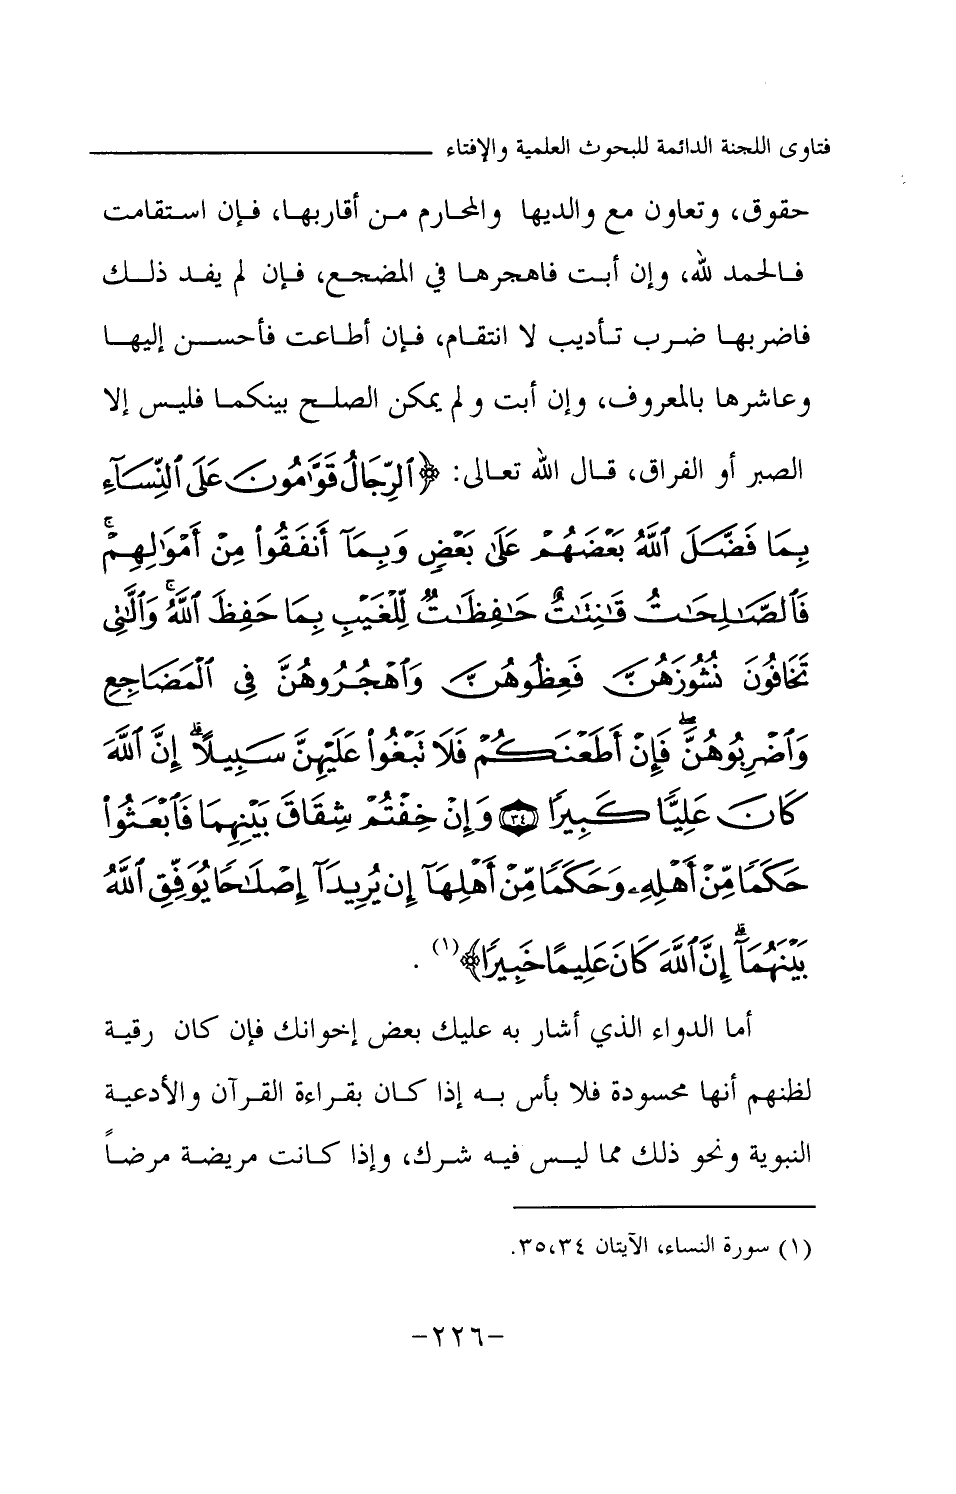 فتاوى اللجنة الدائمة للبحوث العلمية والإفتاء
حقوق، وتعاون مع والديها والمحارم من أقاربها، فإن استقامت
فالحمد لله، وإن أبت فاهجرها في المضجع، فإن لم يفد ذلك
فاضربها ضرب تأديب لا انتقام، فإن أطاعت فأحسن إليها
وعاشرها بالمعروف، وإن أبت ولم يمكن الصلح بينكما فليس إلا
الصبر أو الفراق، قال الله تعالى: ﴿ٱلرِّجَالُ قَوَّٰمُونَ عَلَى ٱلنِّسَآءِ
بِمَا فَضَّلَ ٱللَّهُ بَعْضَهُمْ عَلَىٰ بَعْضٍ وَبِمَآ أَنفَقُوا۟ مِنْ أَمْوَٰلِهِمْ ۚ
فَٱلصَّٰلِحَٰتُ قَٰنِتَٰتٌ حَٰفِظَٰتٌ لِّلْغَيْبِ بِمَا حَفِظَ ٱللَّهُ ۚ وَٱلَّٰتِى
تَخَافُونَ نُشُوزَهُنَّ فَعِظُوهُنَّ وَٱهْجُرُوهُنَّ فِى ٱلْمَضَاجِعِ
وَٱضْرِبُوهُنَّ ۖ فَإِنْ أَطَعْنَكُمْ فَلَا تَبْغُوا۟ عَلَيْهِنَّ سَبِيلًا ۗ إِنَّ ٱللَّهَ
كَانَ عَلِيًّا كَبِيرًا ﴿٣٤﴾ وَإِنْ خِفْتُمْ شِقَاقَ بَيْنِهِمَا فَٱبْعَثُوا۟
حَكَمًا مِّنْ أَهْلِهِۦ وَحَكَمًا مِّنْ أَهْلِهَآ إِن يُرِيدَآ إِصْلَٰحًا يُوَفِّقِ ٱللَّهُ
بَيْنَهُمَآ ۗ إِنَّ ٱللَّهَ كَانَ عَلِيمًا خَبِيرًا﴾ (١) .
أما الدواء الذي أشار به عليك بعض إخوانك فإن كان رقية
لظنهم أنها محسودة فلا بأس به إذا كان بقراءة القرآن والأدعية
النبوية ونحو ذلك مما ليس فيه شرك، وإذا كانت مريضة مرضاً
(١) سورة النساء، الآيتان ٣٥،٣٤.
-٢٢٦-